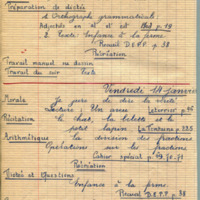 Préparation de dictée
d'orthographe grammaticale
Adjectifs en el et eil p. 19
2. Texte : Enfance à la ferme
Recueil D.E.P.P. p. 38
Récréation
Travail manuel ou dessin
Travail du soir Texte
Vendredi 14 janvier
Morale Je jure de dire la vérité
Lecture : Un avare
Récitation Le chat, la belette et le
petit lapin La Fontaine p. 235
Arithmétique La division des fractions
Opérations sur les fractions
Cahier spécial p.
Récréation
Dictée et Questions
Enfance à la ferme
Recueil D.E.P.P. p. 38